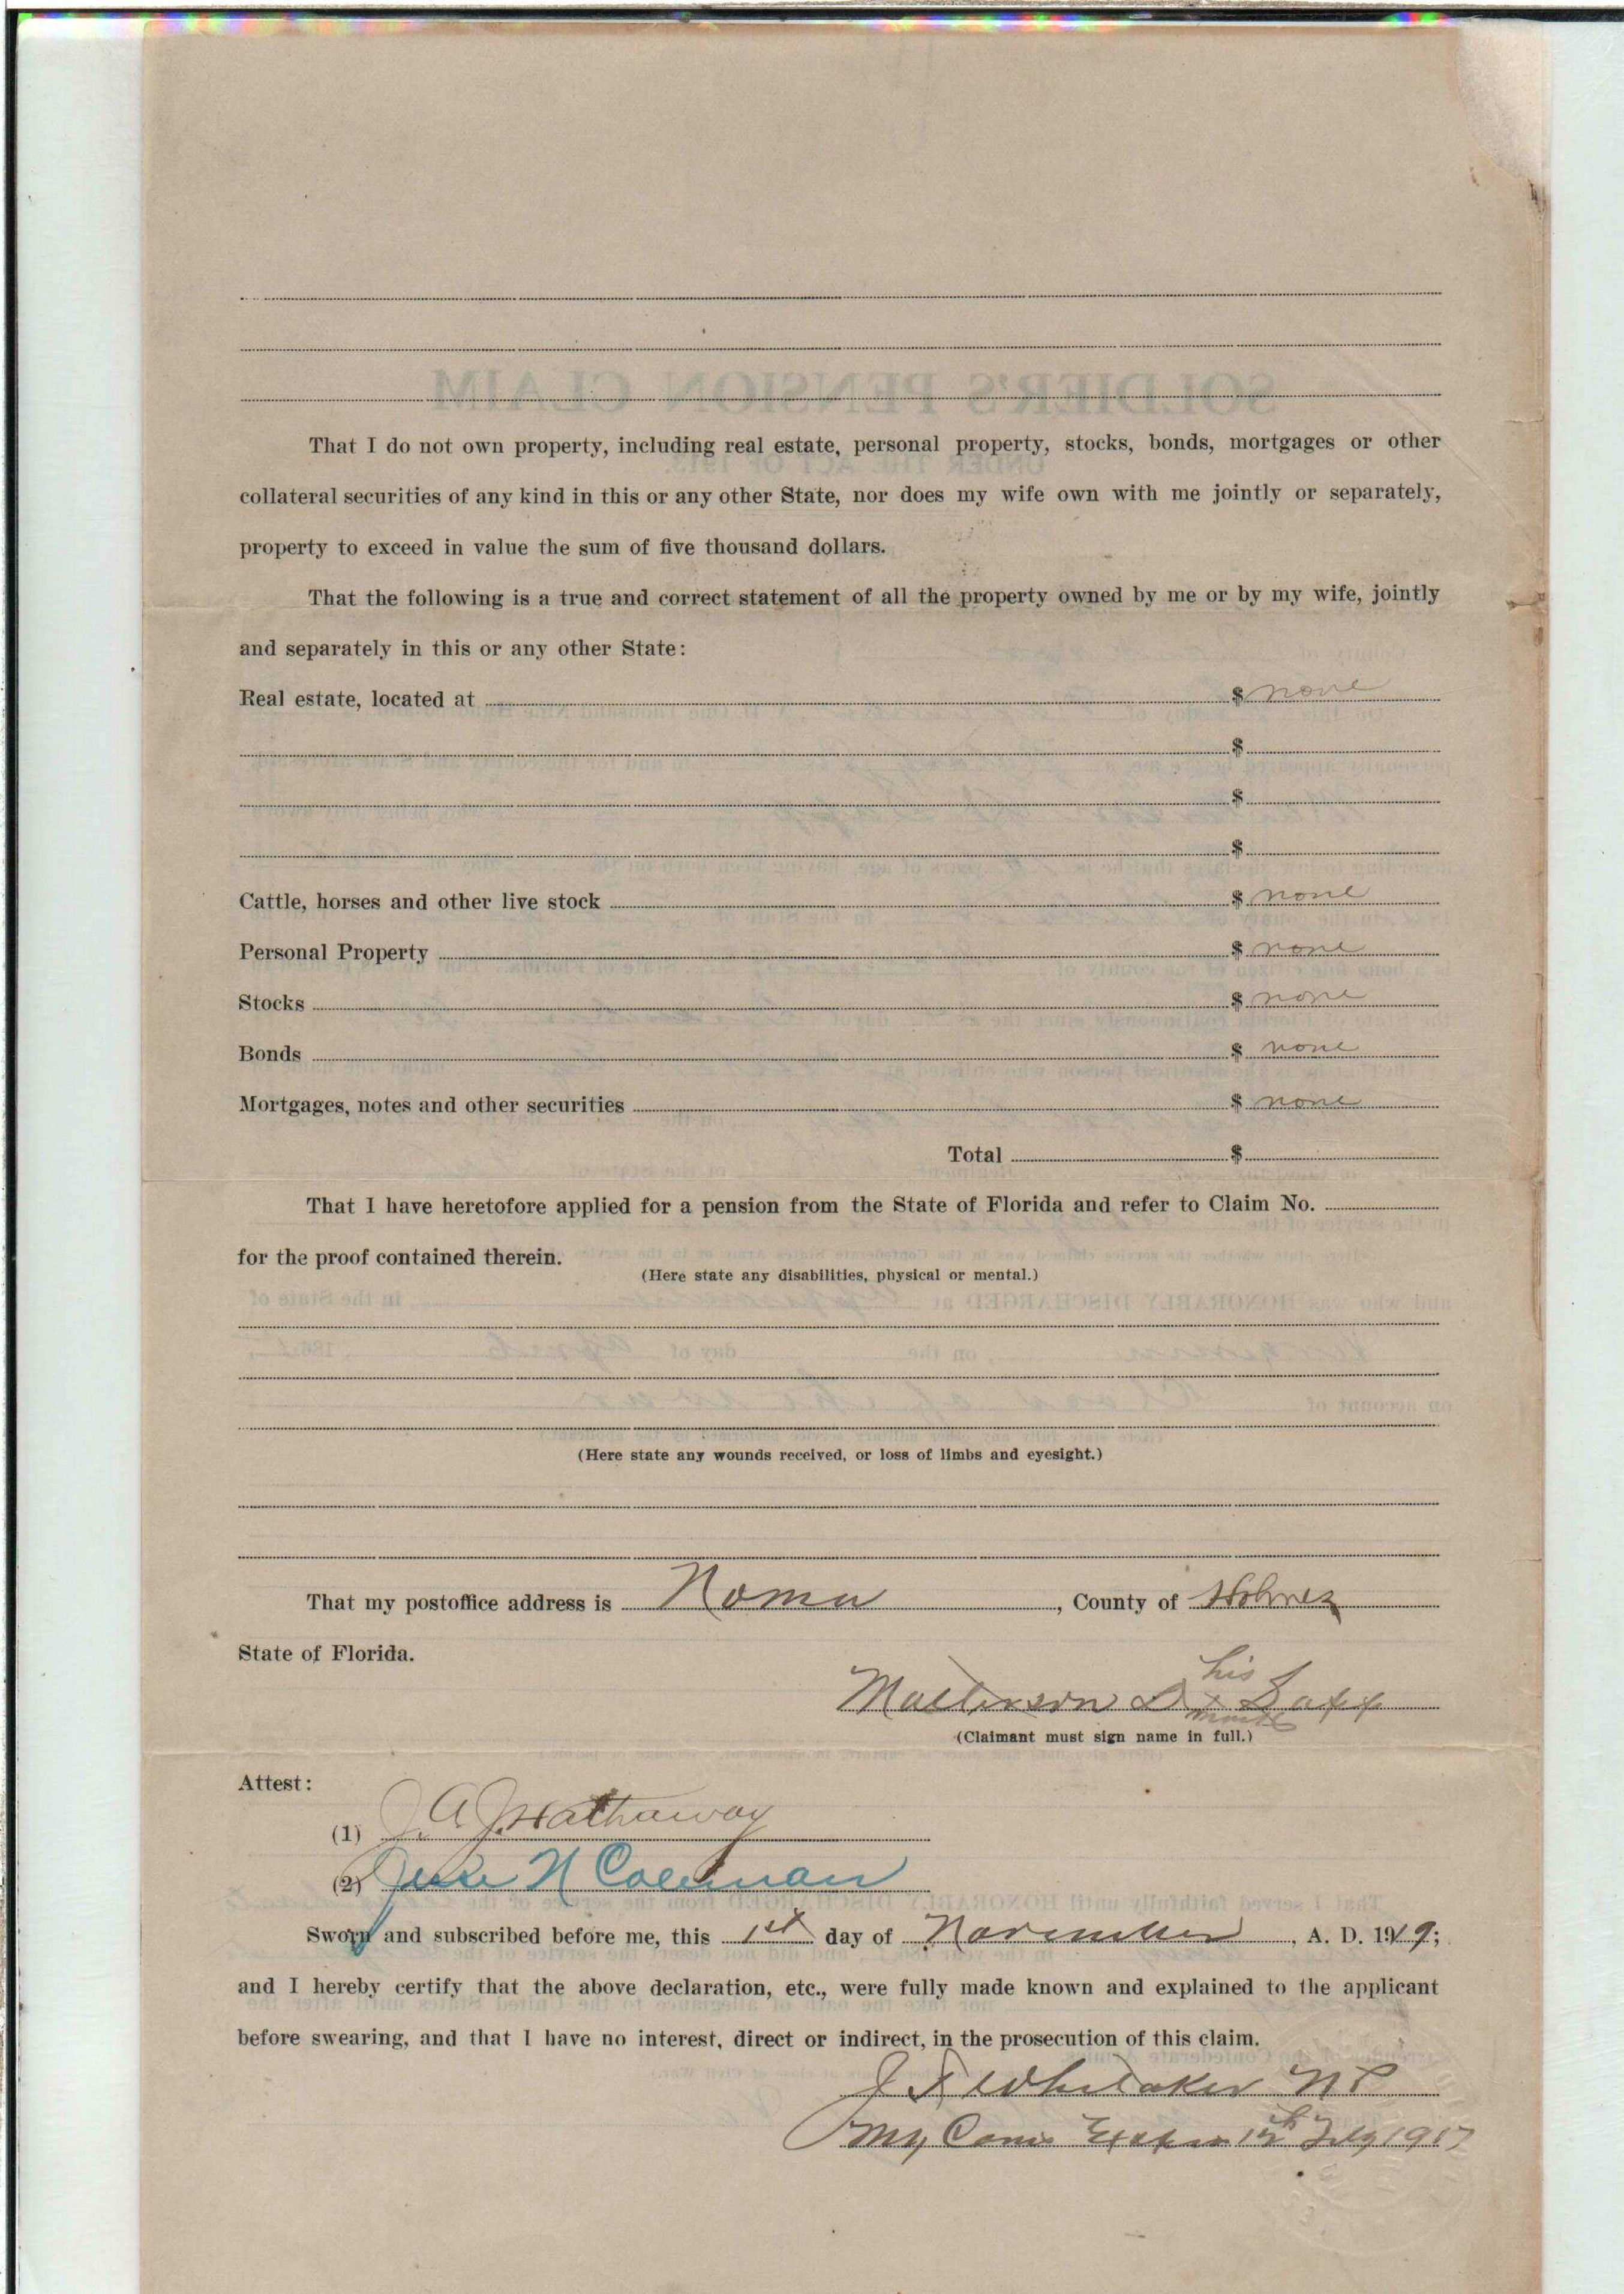 That I do not own property, including real estate, personal property, stocks, bonds, mortgages or other
collateral securities of any kind in this or any other State, nor does my wife own with me jointly or separately,
property to exceed in value the sum of five thousand dollars.
That the following is a true and correct statement of all the property owned by me or by my wife, jointly
and separately in this or any other State:
Real estate, located at $ none
$
$
$
Cattle, horses and other live stock $ none
Personal Property $ none
Stocks $ none
Bonds $ none
Mortgages, notes and other securities $ none
Total $
That I have heretofore applied for a pension from the State of Florida and refer to Claim No.
for the proof contained therein.
(Here state any disabilities, physical or mental.)
(Here state any wounds received, or loss of limbs and eyesight.)
That my postoffice address is Noma, County of Holmes
State of Florida.
his
D x Sapp
mark
(Claimant must sign name in full.)
Attest:
(1) J. A. J. Hathaway
(2) Jesse N Coleman
Sworn and subscribed before me, this 1st day of November, A. D. 19
and I hereby certify that the above declaration, etc., were fully made known and explained to the applicant
before swearing, and that I have no interest, direct or indirect, in the prosecution of this claim.
Whitaker NP
My Com Expires July 1917